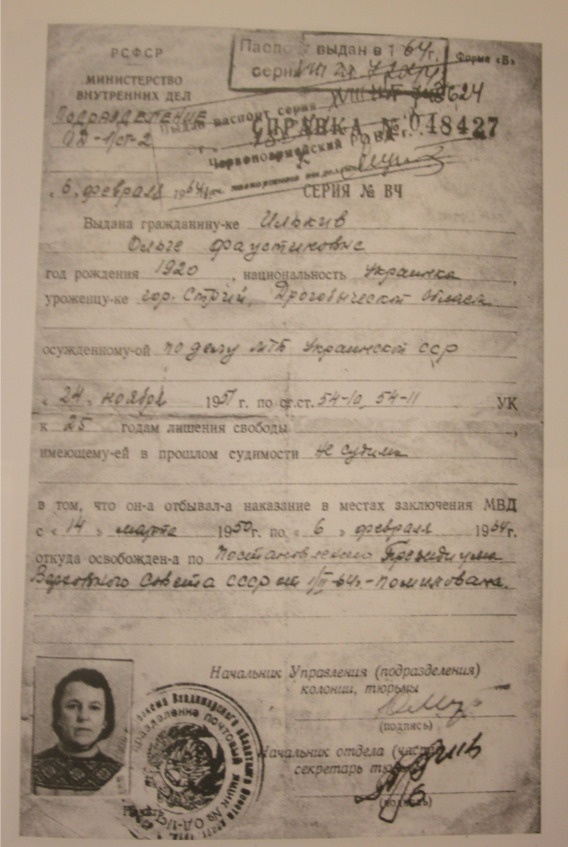 РСФСР
МИНИСТЕРСТВО
ВНУТРЕННИХ ДЕЛ
Подразделение
ОД-1/ст-2
Паспорт выдан в 1964г.
серии
Форма «В»
Выдано паспорт серии
СПРАВКА № 048427
Червоноармейский РОВД
« 6 » февраля 1964г.
СЕРИЯ № ВЧ
Выдана гражданину-ке Илькив
Ольге Фаустиновне
год рождения 1920 , национальность Украинка
уроженцу-ке гор. Стрий, Дрогобычской области
осужденному-ой по делу МГБ Украинской ССР
« 24 » ноября 1951 г. по ст.ст. 54-1а, 54-11 УК
к 25 годам лишения свободы ,
имеющему-ей в прошлом судимости не судима
в том, что он-а отбывал-а наказание в местах заключения МВД
с « 14 » марта 1950 г. по « 6 » февраля 1964 г.
откуда освобожден-а по Постановлению Президиума
Верховного Совета СССР от 1/II-64г.-помилована.
Начальник Управления (подразделения)
колонии, тюрьмы
(подпись)
Начальник отдела (части)
секретарь
(подпись)